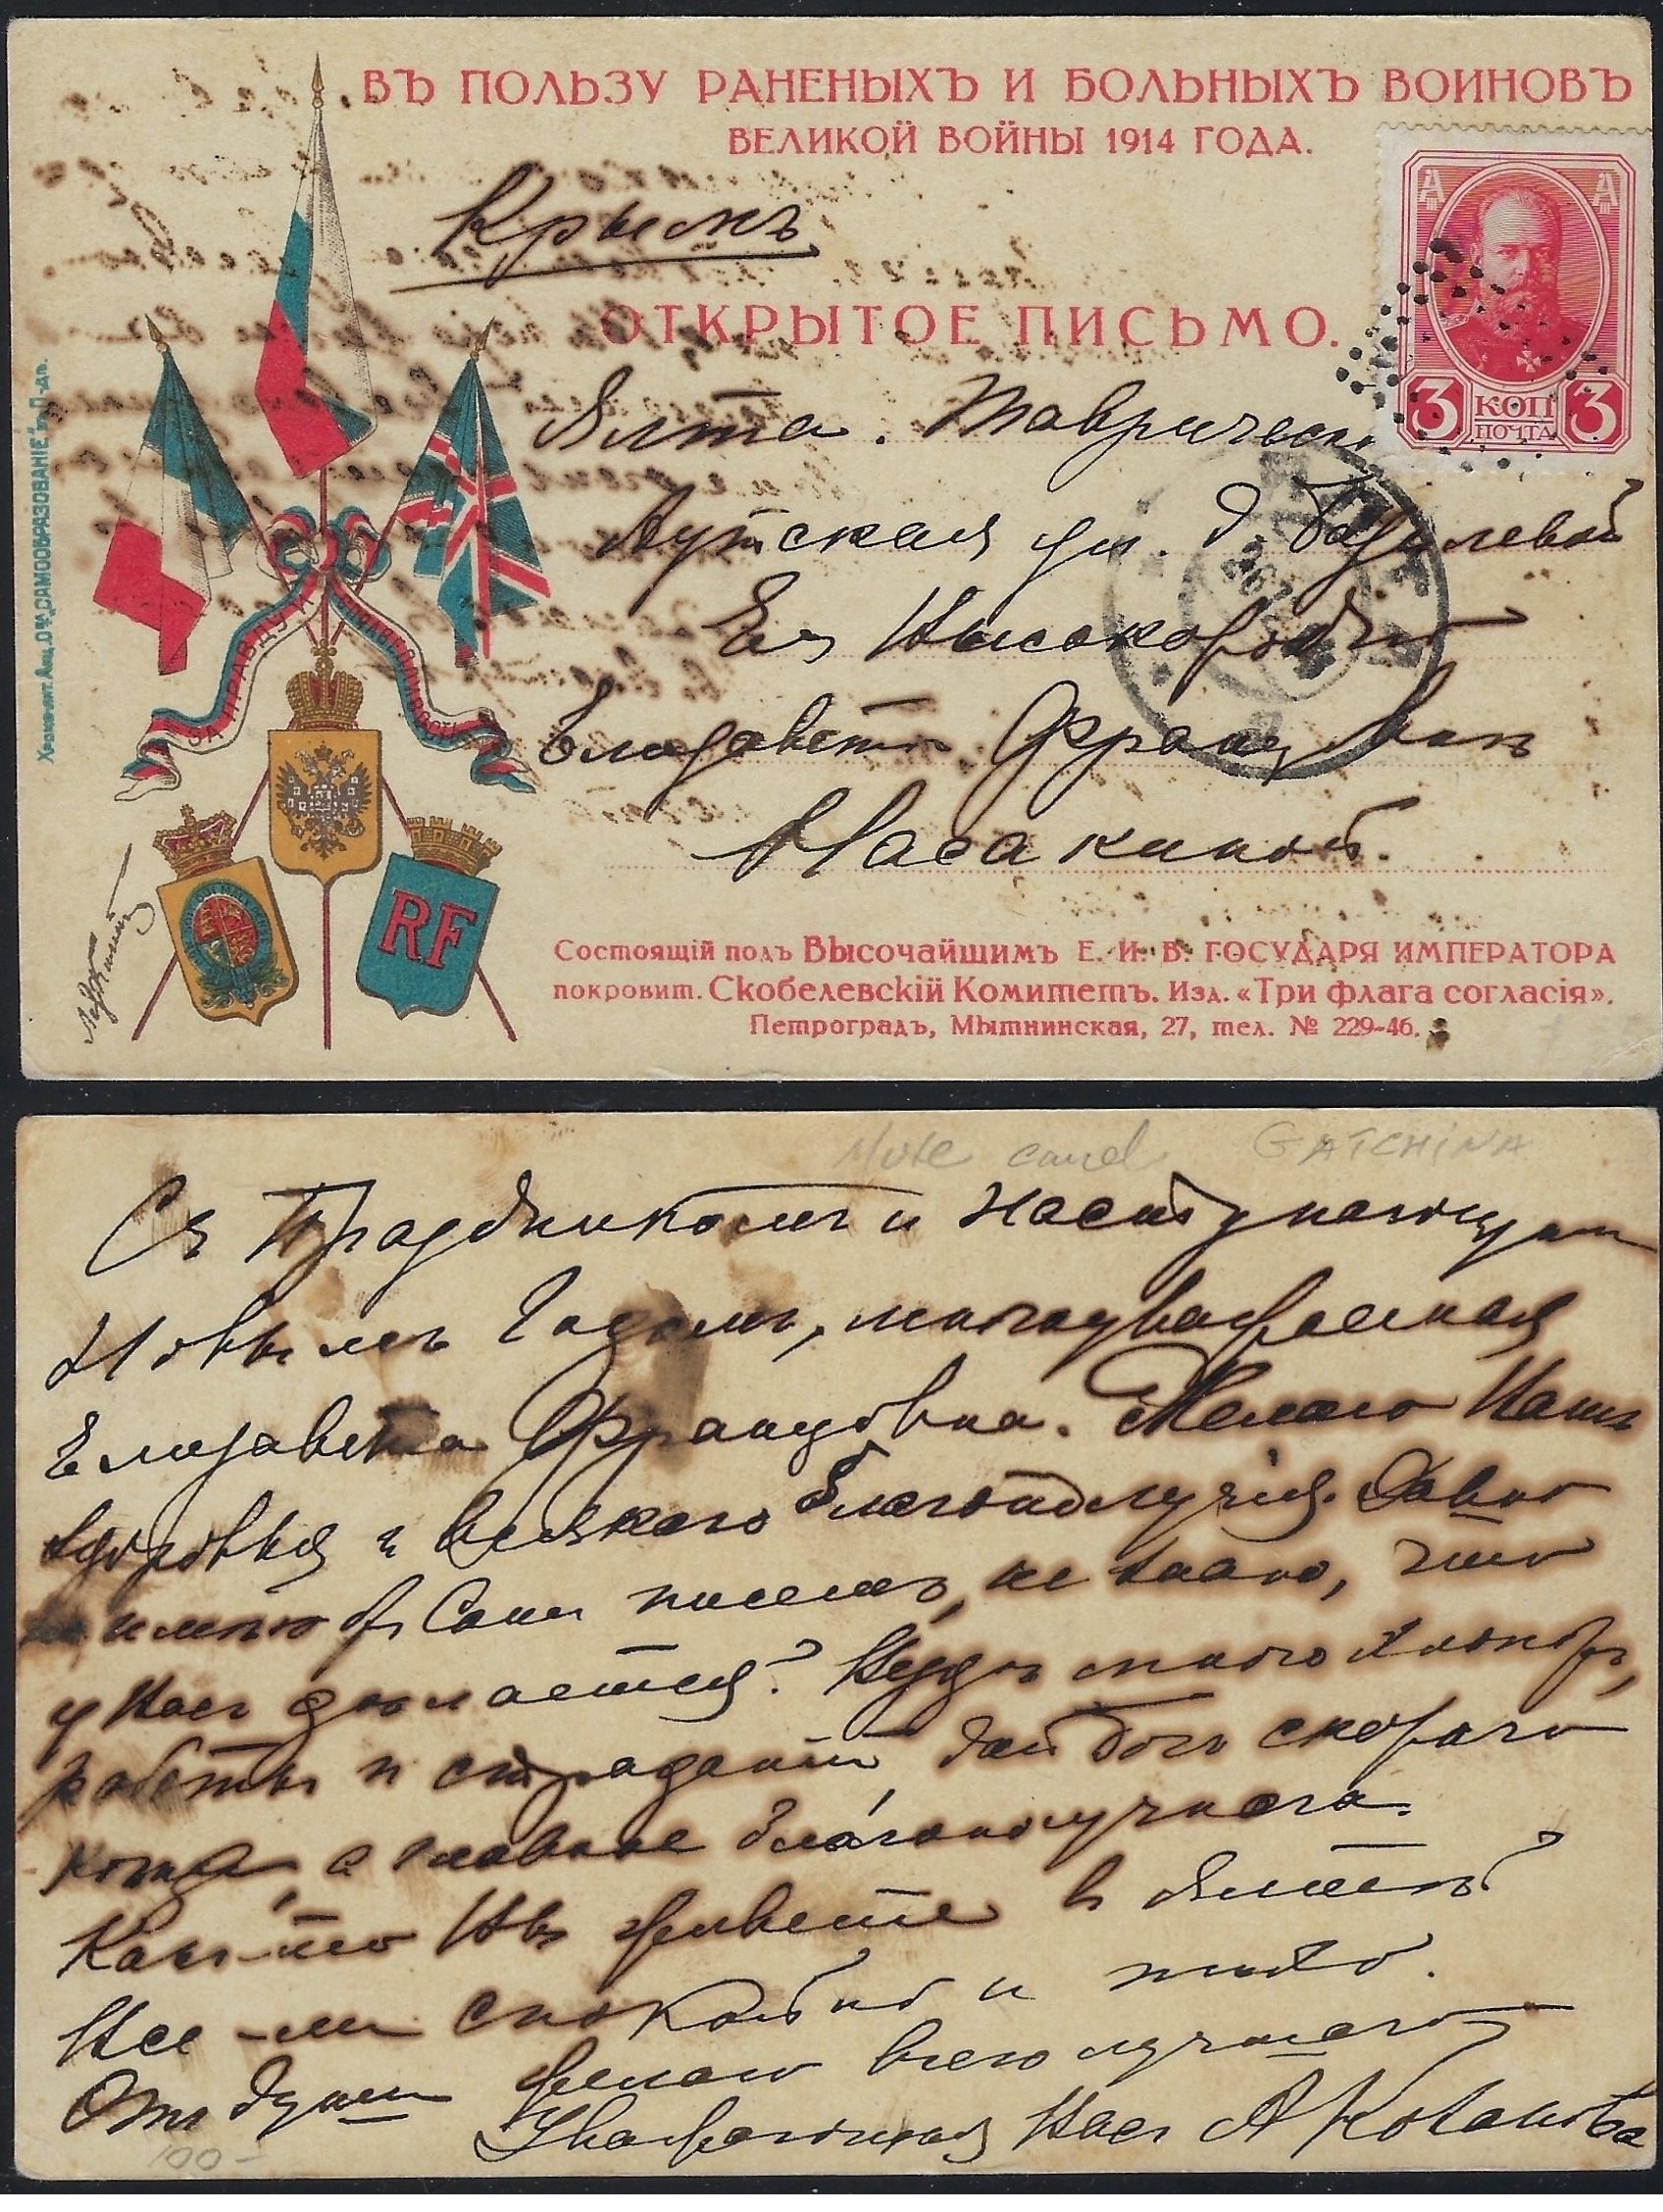 ВЪ ПОЛЬЗУ РАНЕНЫХЪ И БОЛЬНЫХЪ ВОИНОВЪ
ВЕЛИКОЙ ВОЙНЫ 1914 ГОДА.
Крымъ
ОТКРЫТОЕ ПИСЬМО.
А А
3 КОП 3
ПОЧТА
Ялта. Таврическ
Аутская ул. д.
Ея Высокородію
Елизаветѣ Францовнѣ
Насакиной.
Хромо-лит. Акц. О-ва „САМООБРАЗОВАНІЕ", П-дъ.
ЗА ПРАВДУ И
RF
Состоящій подъ Высочайшимъ Е. И. В. ГОСУДАРЯ ИМПЕРАТОРА
покровит. Скобелевскій Комитетъ. Изд. «Три флага согласія».
Петроградъ, Мытнинская, 27, тел. № 229-46.
Mute card GATCHINA
Съ Праздникомъ и наступающимъ
Новымъ Годомъ, многоуважаемая
Елизавета Францовна. Желаю Вамъ
здоровья и всякаго благополучія. Давно
не имѣю отъ Сани писемъ, не знаю, что
у Васъ дѣлается? Вездѣ много хлопотъ,
работы и страданій, дай Богъ скораго
конца, а главное благополучнаго.
Какъ-то Вы живете въ Ялтѣ?
Все-ли спокойно и тихо.
Отъ души желаю всего лучшаго
Уважающая Васъ А Коханова
100-